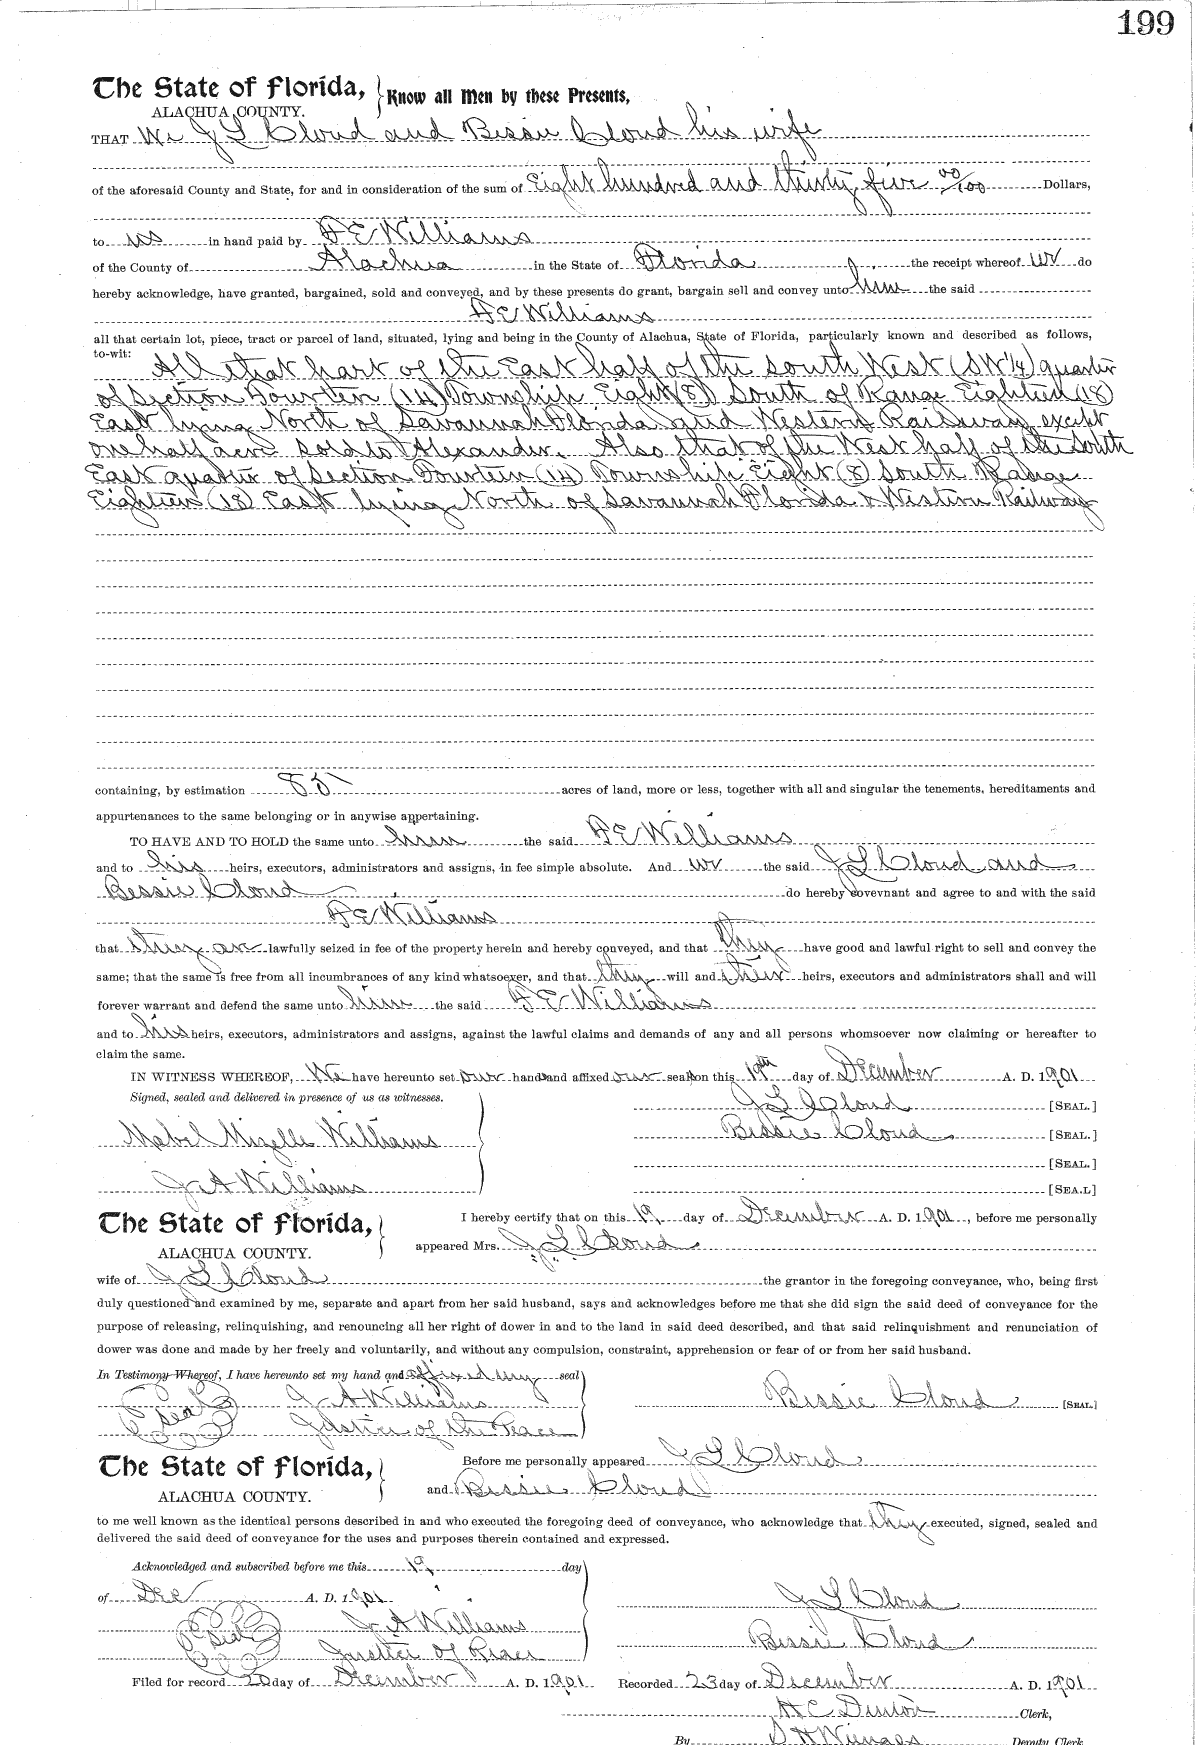 199
The State of Florida, Know all Men by these Presents,
ALACHUA COUNTY.
THAT We J L Cloud and Bessie Cloud his wife
of the aforesaid County and State, for and in consideration of the sum of Eight hundred and thirty five 00/100 Dollars,
to us in hand paid by F E Williams
of the County of Alachua in the State of Florida, the receipt whereof we do
hereby acknowledge, have granted, bargained, sold and conveyed, and by these presents do grant, bargain sell and convey unto him the said
F E Williams
all that certain lot, piece, tract or parcel of land, situated, lying and being in the County of Alachua, State of Florida, particularly known and described as follows,
to-wit:
All that part of the East half of the South West (SW 1/4) quarter
of Section Fourteen (14) Township Eight (8) South of Range Eighteen (18)
East lying North of Savannah Florida and Western Railway except
one half acre sold to Alexander. Also that of the West half of the South
East quarter of Section Fourteen (14) Township Eight (8) South Range
Eighteen (18) East lying North of Savannah Florida & Western Railway
containing, by estimation 85 acres of land, more or less, together with all and singular the tenements, hereditaments and
appurtenances to the same belonging or in anywise appertaining.
TO HAVE AND TO HOLD the same unto him the said F E Williams
and to his heirs, executors, administrators and assigns, in fee simple absolute. And we the said J L Cloud and
Bessie Cloud do hereby covevnant and agree to and with the said
F E Williams
that they are lawfully seized in fee of the property herein and hereby conveyed, and that they have good and lawful right to sell and convey the
same; that the same is free from all incumbrances of any kind whatsoever, and that they will and their heirs, executors and administrators shall and will
forever warrant and defend the same unto him the said F E Williams
and to his heirs, executors, administrators and assigns, against the lawful claims and demands of any and all persons whomsoever now claiming or hereafter to
claim the same.
IN WITNESS WHEREOF, We have hereunto set our hands and affixed our seals on this 19th day of December A. D. 1901
Signed, sealed and delivered in presence of us as witnesses. J L Cloud [SEAL.]
Mabel Mizelle Williams Bessie Cloud [SEAL.]
[SEAL.]
J A Williams [SEA.L]
The State of Florida, I hereby certify that on this 19 day of December A. D. 1901, before me personally
ALACHUA COUNTY. appeared Mrs. J L Cloud
wife of J L Cloud the grantor in the foregoing conveyance, who, being first
duly questioned and examined by me, separate and apart from her said husband, says and acknowledges before me that she did sign the said deed of conveyance for the
purpose of releasing, relinquishing, and renouncing all her right of dower in and to the land in said deed described, and that said relinquishment and renunciation of
dower was done and made by her freely and voluntarily, and without any compulsion, constraint, apprehension or fear of or from her said husband.
In Testimony Whereof, I have hereunto set my hand and affixed my seal
Seal J A Williams Bessie Cloud [SEAL.]
Justice of the Peace
The State of Florida, Before me personally appeared J L Cloud
ALACHUA COUNTY. and Bessie Cloud
to me well known as the identical persons described in and who executed the foregoing deed of conveyance, who acknowledge that they executed, signed, sealed and
delivered the said deed of conveyance for the uses and purposes therein contained and expressed.
Acknowledged and subscribed before me this 19 day
of Dec A. D. 1901 J L Cloud
Seal J A Williams
Bessie Cloud
Justice of Peace
Filed for record 20 day of December A. D. 1901 Recorded 23 day of December A. D. 1901
H C Denton Clerk,
By S H Wienges Deputy Clerk